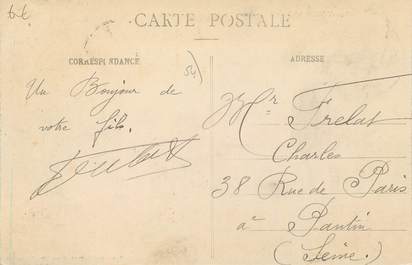 6€
CARTE POSTALE
CORRESPONDANCE
ADRESSE
54)
Un Bonjour de
votre fils.
Mr Frelat
Charles
38 Rue de Paris
à Pantin
(Seine.)